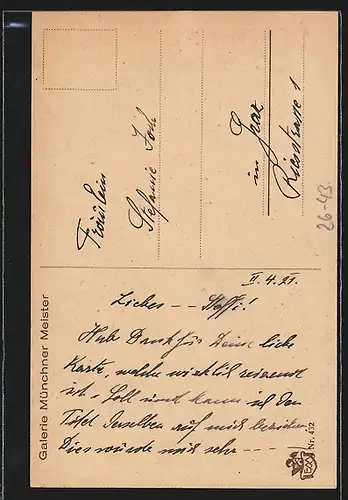 Fräulein
Stefanie
in Graz
Riesstrasse 1
26-43
II. 4. 21.
Liebes - - Steffi!
Hab Dank für Deine liebe
Karte, welche wirklich reizend
ist. Soll und kann ich den
Titel derselben auf mich beziehen
Dies würde mich sehr - - -
Galerie Münchner Meister
Nr. 432